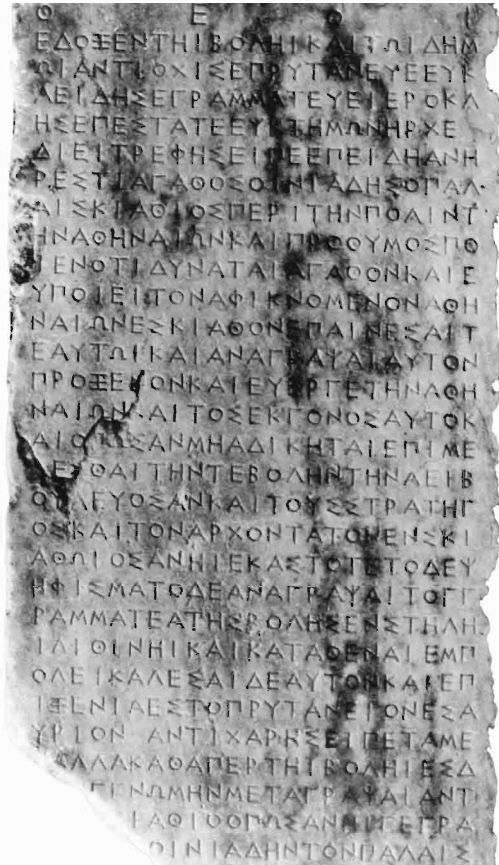 Θ Ε Ο Ι
ΕΔΟΞΕΝΤΗΙΒΟΛΗΙΚΑΙΤΩΙΔΗΜ
ΩΙΑΝΤΙΟΧΙΣΕΠΡΥΤΑΝΕΥΕΕΥΚ
ΛΕΙΔΗΣΕΓΡΑΜΜΑΤΕΥΕΙΕΡΟΚΛ
ΗΣΕΠΕΣΤΑΤΕΕΥΚΤΗΜΩΝΗΡΧΕ
ΔΙΕΙΤΡΕΦΗΣΕΙΠΕΕΠΕΙΔΗΑΝΗ
ΡΕΣΤΙΑΓΑΘΟΣΟΙΝΙΑΔΗΣΟΠΑΛ
ΑΙΣΚΙΑΘΙΟΣΠΕΡΙΤΗΝΠΟΛΙΝΤ
ΗΝΑΘΗΝΑΙΩΝΚΑΙΠΡΟΘΥΜΟΣΠΟ
ΕΝΟΤΙΔΥΝΑΤΑΙΑΓΑΘΟΝΚΑΙΕ
ΥΠΟΙΕΙΤΟΝΑΦΙΚΝΟΜΕΝΟΝΑΘΗ
ΝΑΙΩΝΕΣΚΙΑΘΟΝΕΠΑΙΝΕΣΑΙΤ
ΕΑΥΤΩΙΚΑΙΑΝΑΓΡΑΨΑΙΑΥΤΟΝ
ΠΡΟΞΕΝΟΝΚΑΙΕΥΕΡΓΕΤΗΝΑΘΗ
ΝΑΙΩΝΚΑΙΤΟΣΕΚΓΟΝΟΣΑΥΤΟΚ
ΑΙΟΠΩΣΑΝΜΗΑΔΙΚΗΤΑΙΕΠΙΜΕ
ΛΕΣΘΑΙΤΗΝΤΕΒΟΛΗΝΤΗΝΑΕΙΒ
ΟΥΛΕΥΟΣΑΝΚΑΙΤΟΥΣΣΤΡΑΤΗΓ
ΟΣΚΑΙΤΟΝΑΡΧΟΝΤΑΤΟΝΕΝΣΚΙ
ΑΘΩΙΟΣΑΝΗΙΕΚΑΣΤΟΤΕΤΟΔΕΨ
ΗΦΙΣΜΑΤΟΔΕΑΝΑΓΡΑΨΑΙΤΟΓΓ
ΡΑΜΜΑΤΕΑΤΗΣΒΟΛΗΣΕΝΣΤΗΛΗ
ΙΛΙΘΙΝΗΙΚΑΙΚΑΤΑΘΕΝΑΙΕΜΠ
ΟΛΕΙΚΑΛΕΣΑΙΔΕΑΥΤΟΝΚΑΙΕΠ
ΙΞΕΝΙΑΕΣΤΟΠΡΥΤΑΝΕΙΟΝΕΣΑ
ΥΡΙΟΝ ΑΝΤΙΧΑΡΗΣΕΙΠΕΤΑΜΕ
ΑΛΛΑΚΑΘΑΠΕΡΤΗΙΒΟΛΗΙΕΣΔ
ΓΕΝΩΜΗΝΜΕΤΑΓΡΑΨΑΙΑΝΤΙ
ΙΑΘΙΟΟΠΩΣΑΝΗΙΓΕΓΡΑ
ΟΙΝΙΑΔΗΝΤΟΝΠΑΛΑΙΣ